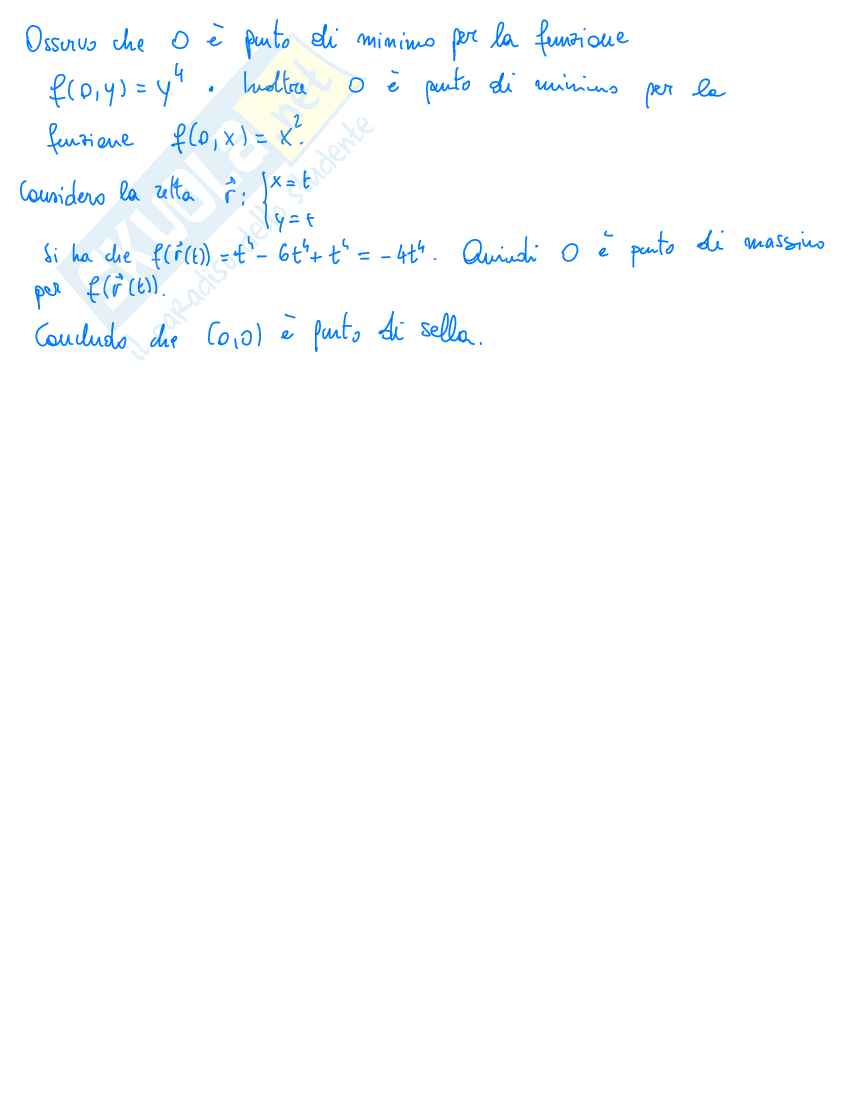 Osservo che 0 è punto di minimo per la funzione
f(0,y) = y⁴ . Inoltre 0 è punto di minimo per la
funzione f(0,x) = x².
Considero la retta r⃗: { x = t
y = t
Si ha che f(r⃗(t)) = t⁴ - 6t⁴ + t⁴ = -4t⁴. Quindi 0 è punto di massimo
per f(r⃗(t)).
Concludo che (0,0) è punto di sella.
SKUOLA.net
il paradiso dello studente